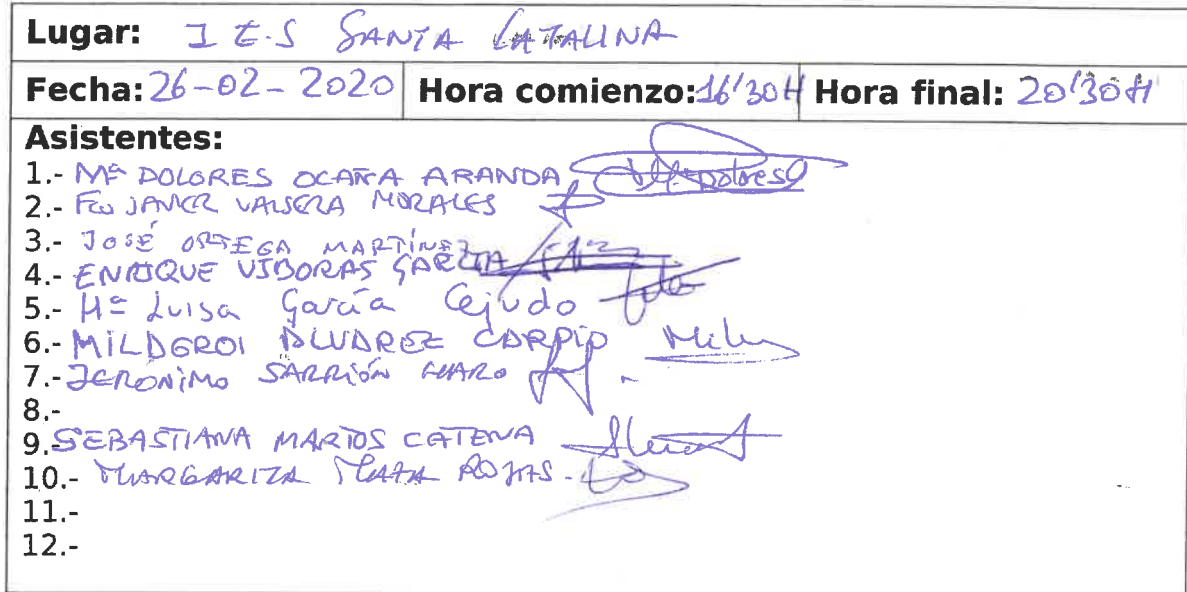 Lugar: I E.S SANTA CATALINA
Fecha: 26-02-2020 Hora comienzo: 16'30H Hora final: 20'30H
Asistentes:
1.- Mª DOLORES OCAÑA ARANDA Mª Dolores
2.- Fco JAVIER VALSERA MORALES
3.- JOSÉ ORTEGA MARTÍNEZ
4.- ENRIQUE VIBORAS GARCIA
5.- Mª Luisa García Cejudo
6.- MILAGROS ALVAREZ CARPIO Mila
7.- JERÓNIMO SARRIÓN
8.-
9. SEBASTIANA MARTOS CATENA
10.- MARGARITA MATA ROJAS.
11.-
12.-